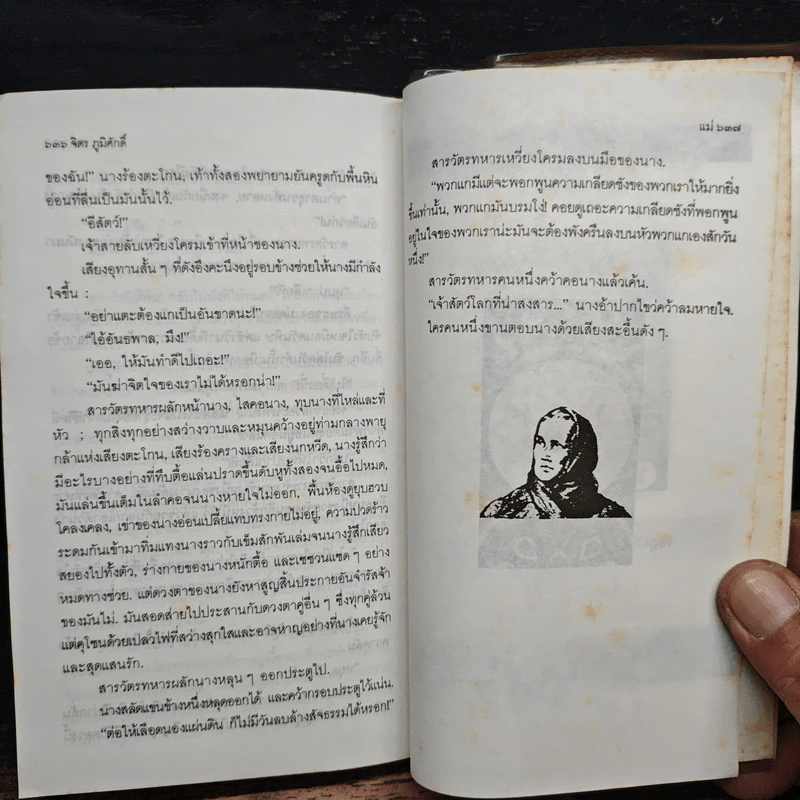 ๖๓๖ จิตร ภูมิศักดิ์
ของฉัน!” นางร้องตะโกน, เท้าทั้งสองพยายามยันครูดกับพื้นหิน
อ่อนที่ลื่นเป็นมันนั้นไว้.
“อีสัตว์!”
เจ้าสายลับเหวี่ยงโครมเข้าที่หน้าของนาง.
เสียงอุทานสั้น ๆ ที่ดังอึงคะนึงอยู่รอบข้างช่วยให้นางมีกำลัง
ใจขึ้น :
“อย่าแตะต้องแกเป็นอันขาดนะ!”
“ไอ้อันธพาล, มึง!”
“เออ, ให้มันทำดีไปเถอะ!”
“มันฆ่าจิตใจของเราไม่ได้หรอกน่า!”
สารวัตรทหารผลักหน้านาง, ไสคอนาง, ทุบนางที่ไหล่และที่
หัว ; ทุกสิ่งทุกอย่างสว่างวาบและหมุนคว้างอยู่ท่ามกลางพายุ
กล้าแห่งเสียงตะโกน, เสียงร้องครางและเสียงนกหวีด, นางรู้สึกว่า
มีอะไรบางอย่างที่ทึบตื้อแล่นปราดขึ้นดับหูทั้งสองจนอื้อไปหมด,
มันแล่นขึ้นเต็มในลำคอจนนางหายใจไม่ออก, พื้นห้องดูยุบฮวบ
โคลงเคลง, เข่าของนางอ่อนเปลี้ยแทบทรงกายไม่อยู่, ความปวดร้าว
ระดมกันเข้ามาทิ่มแทงนางราวกับเข็มสักพันเล่มจนนางรู้สึกเสียว
สยองไปทั้งตัว, ร่างกายของนางหนักตื้อ และเซซวนแซด ๆ อย่าง
หมดทางช่วย. แต่ดวงตาของนางยังหาสูญสิ้นประกายอันจำรัสจ้า
ของมันไม่. มันสอดส่ายไปประสานกับดวงตาคู่อื่น ๆ ซึ่งทุกคู่ล้วน
แต่คุโชนด้วยเปลวไฟที่สว่างสุกใสและอาจหาญอย่างที่นางเคยรู้จัก
และสุดแสนรัก.
สารวัตรทหารผลักนางหลุน ๆ ออกประตูไป.
นางสลัดแขนข้างหนึ่งหลุดออกได้ และคว้ากรอบประตูไว้แน่น.
“ต่อให้เลือดนองแผ่นดิน ก็ไม่มีวันลบล้างสัจธรรมได้หรอก!”
แม่ ๖๓๗
สารวัตรทหารเหวี่ยงโครมลงบนมือของนาง.
“พวกแกมีแต่จะพอกพูนความเกลียดชังของพวกเราให้มากยิ่ง
ขึ้นเท่านั้น, พวกแกมันบรมโง่! คอยดูเถอะความเกลียดชังที่พอกพูน
อยู่ในใจของพวกเราน่ะมันจะต้องพังครืนลงบนหัวพวกแกเองสักวัน
หนึ่ง!”
สารวัตรทหารคนหนึ่งคว้าคอนางแล้วเค้น.
“เจ้าสัตว์โลกที่น่าสงสาร...” นางอ้าปากไขว่คว้าลมหายใจ.
ใครคนหนึ่งขานตอบนางด้วยเสียงสะอื้นดัง ๆ.